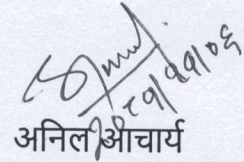 २०८१/११/०६
अनिल आचार्य